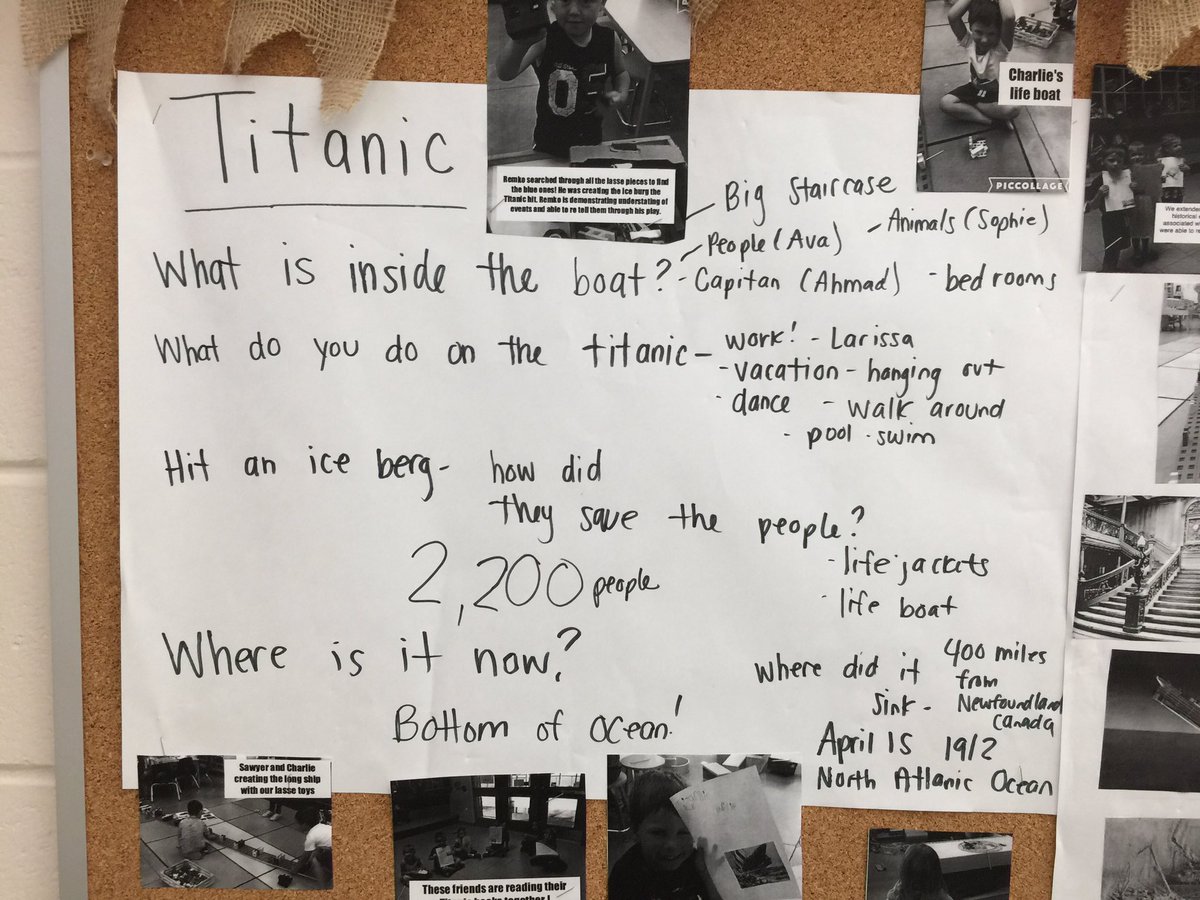 Titanic
Remko searched through all the lasse pieces to find
the blue ones! He was creating the Ice burg the
Titanic hit. Remko is demonstrating understating of
events and able to re tell them through his play.
Charlie's
life boat
PICCOLLAGE
We extended
historical
associated
were able to re
What is inside the boat?
- Big Staircase
- People (Ava)
- Animals (Sophie)
- Capitan (Ahmad)
- bedrooms
What do you do on the titanic -
work! - Larissa
- vacation - hanging out
- dance - walk around
- pool - swim
Hit an ice berg - how did
they save the people?
2,200 people
- life jackets
- life boat
Where is it now?
Bottom of ocean!
where did it
sink -
400 miles
from
Newfoundland
Canada
April 15 1912
North Atlanic Ocean
Sawyer and Charlie
creating the long ship
with our lasse toys
These friends are reading their